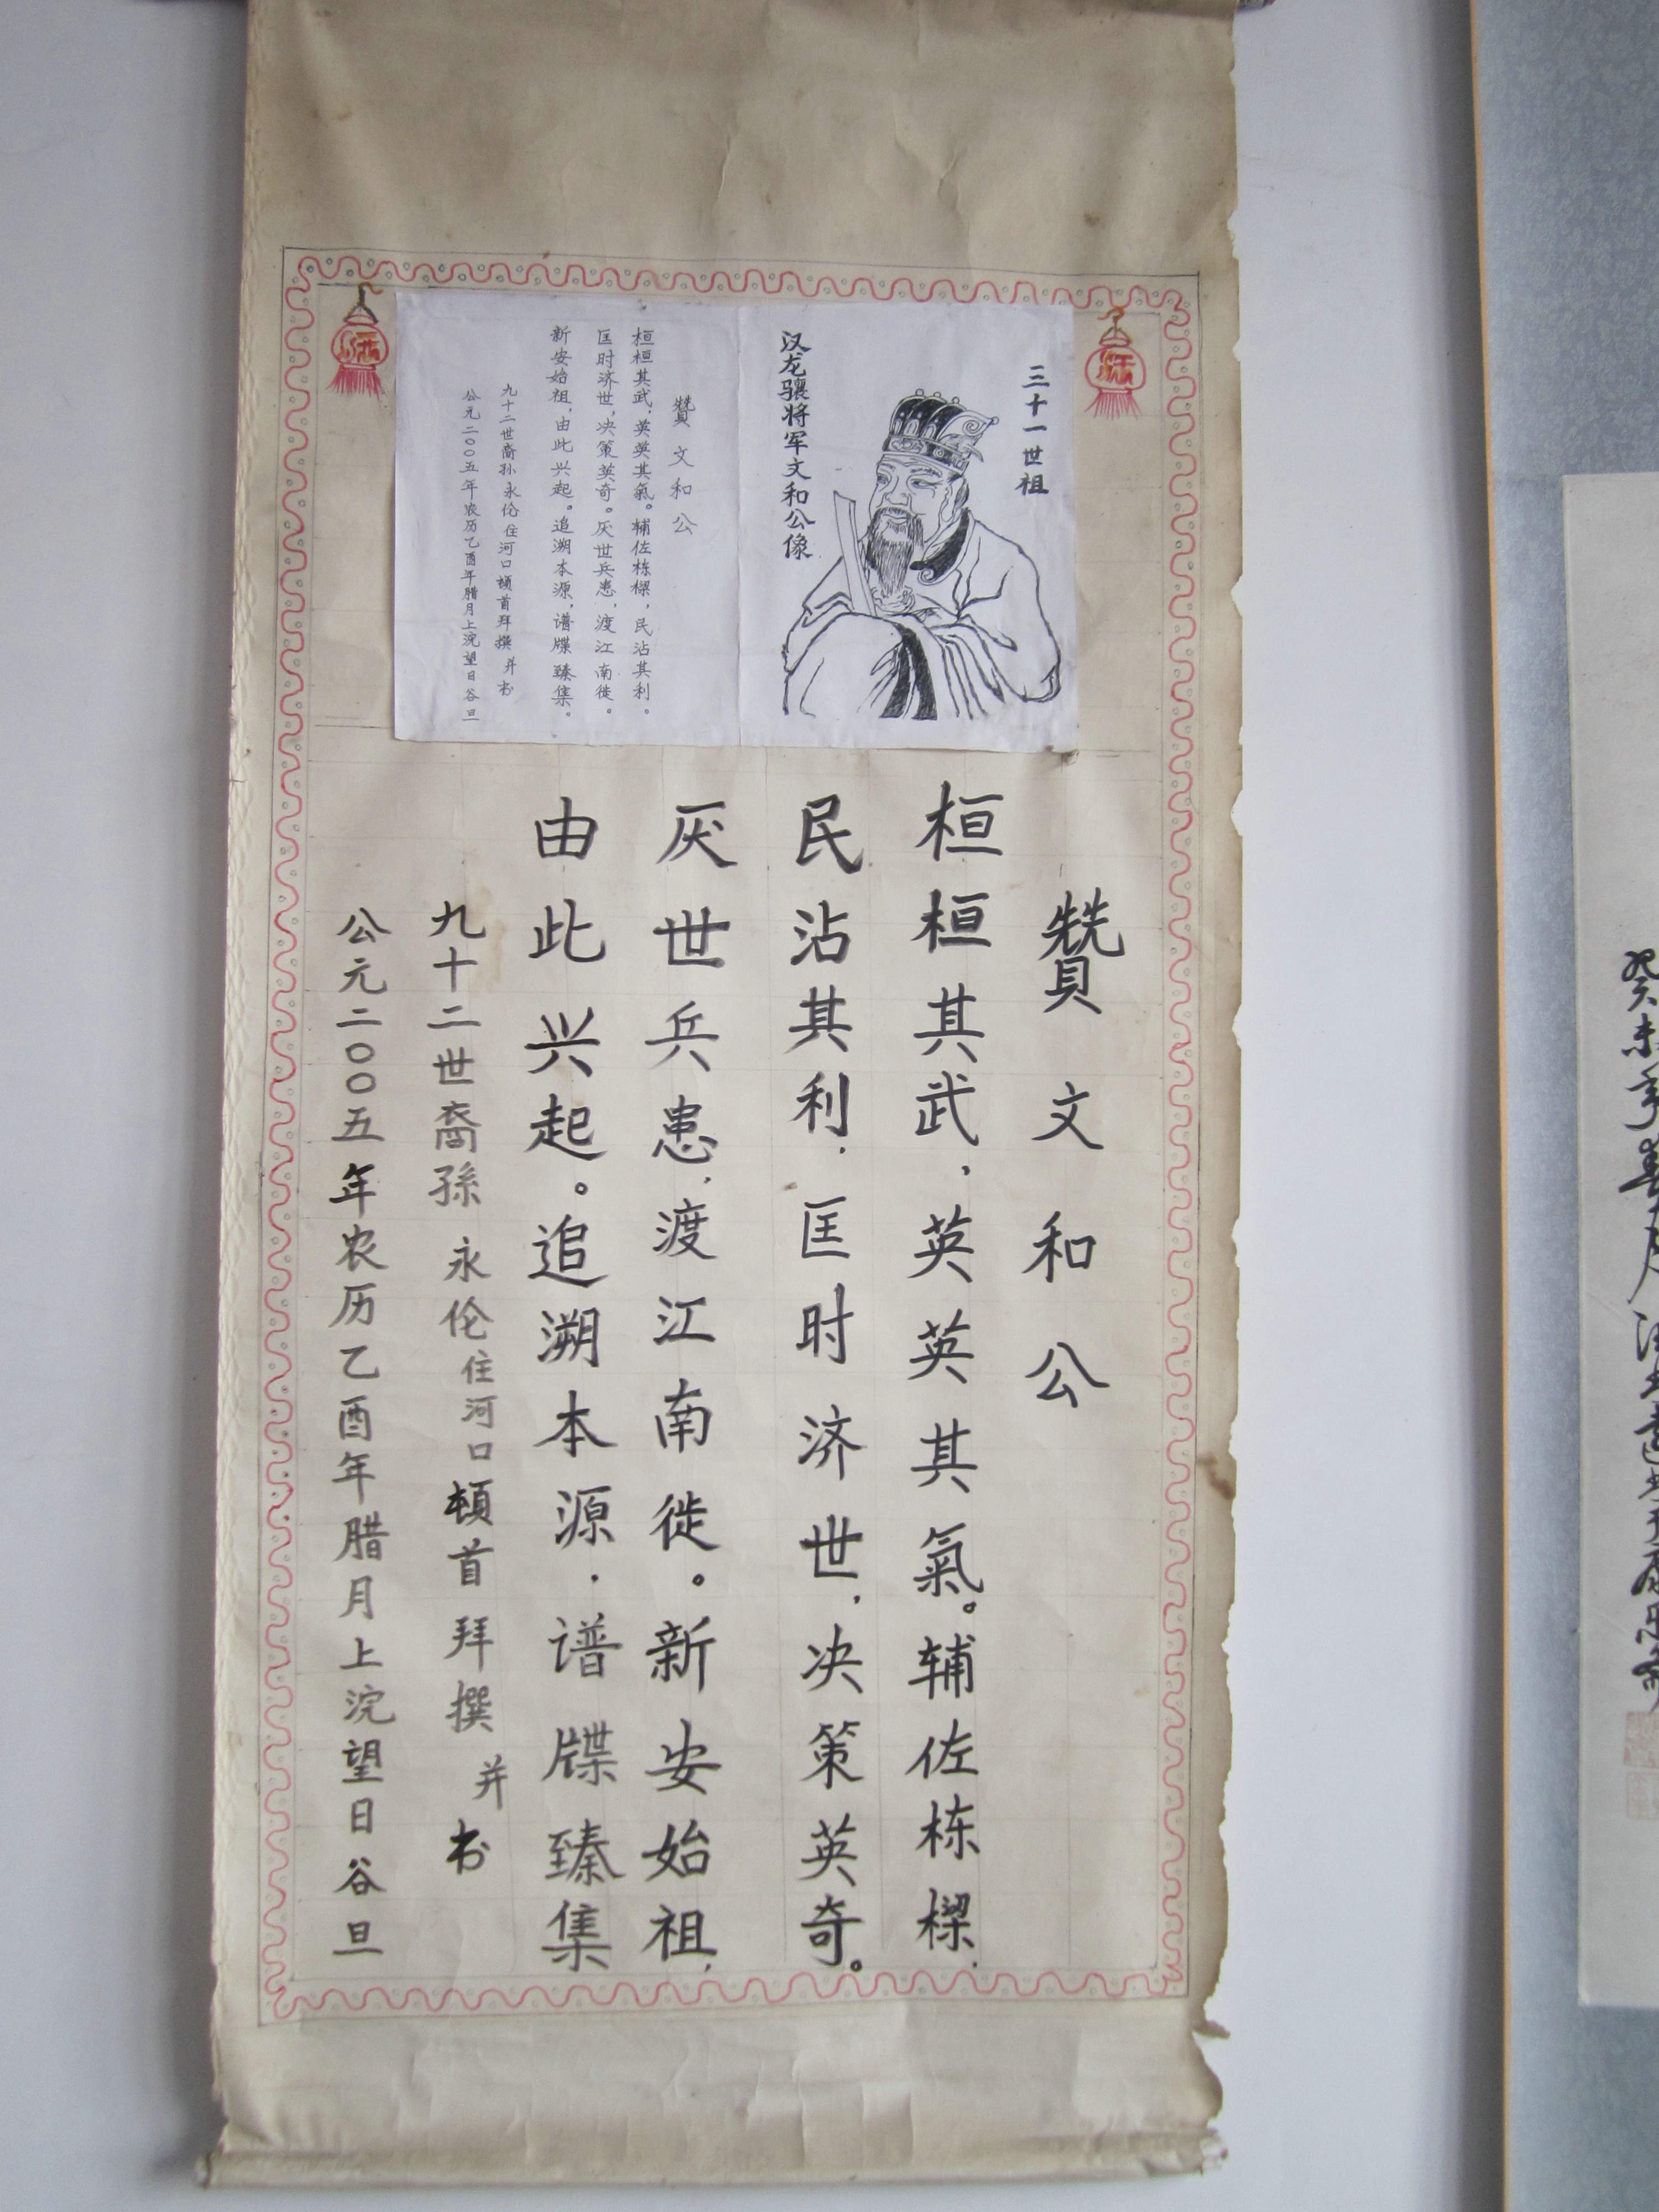 三十一世祖
汉龙骧将军文和公像
赞文和公
桓桓其武，英英其氣。辅佐栋樑，民沾其利。
匡时济世，决策英奇。厌世兵患，渡江南徙。
新安始祖，由此兴起。追溯本源，谱牒臻集。
九十二世裔孙永伦住河口顿首拜撰并书
公元二〇〇五年农历乙酉年腊月上浣望日谷旦
贊文和公
桓桓其武，英英其氣。辅佐栋樑，
民沾其利．匡时济世，决策英奇。
厌世兵患，渡江南徙。新安始祖，
由此兴起。追溯本源．谱牒臻集
九十二世裔孫永伦住河口頓首拜撰并书
公元二〇〇五年农历乙酉年腊月上浣望日谷旦
癸未年